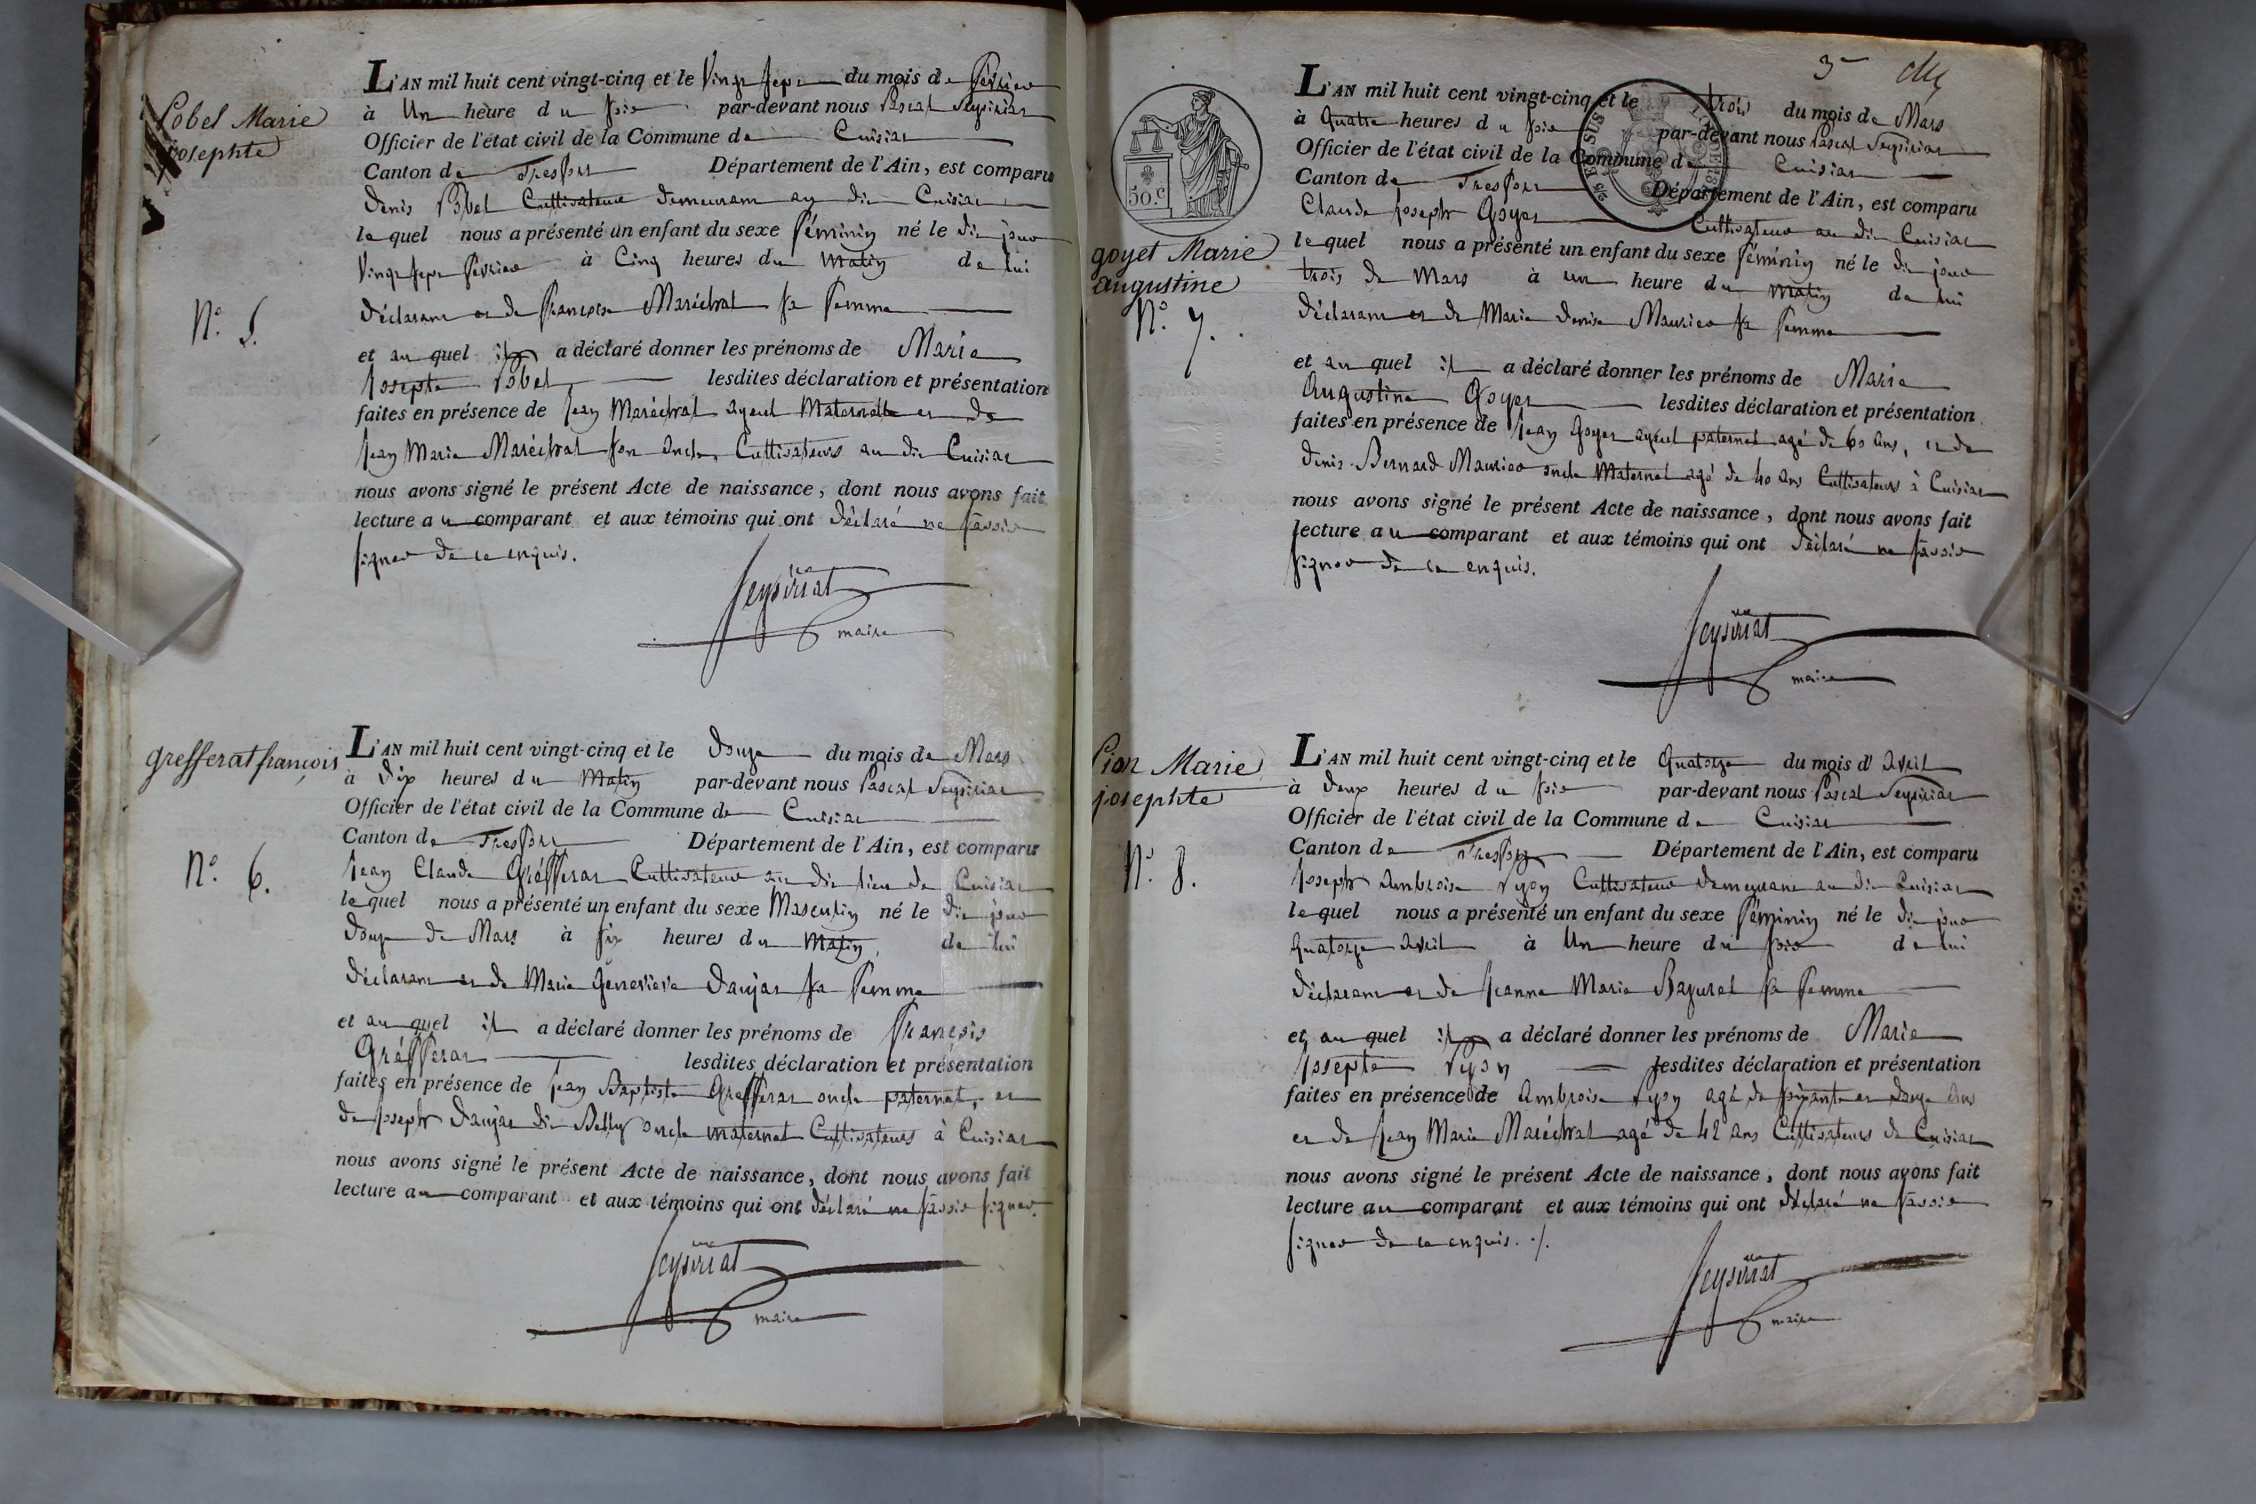 Lobel Marie
josephte
N.° 5.
L'AN mil huit cent vingt-cinq et le Vingt sept du mois de février
à Un heure du soir par-devant nous Pascal Seysiriat
Officier de l'état civil de la Commune de Cuisiat
Canton de Treffort Département de l'Ain, est comparu
Denis Lobel Cultivateur demeurant au dit Cuisiat
lequel nous a présenté un enfant du sexe féminin né le dit jour
Vingt sept février à Cinq heures du matin de lui
déclarant et de françoise Maréchal sa femme
et au quel il a déclaré donner les prénoms de Marie
Josepte Lobel lesdites déclaration et présentation
faites en présence de Jean Maréchal ayeul Maternelle et de
Jean Marie Maréchal son oncle, Cultivateurs au dit Cuisiat
nous avons signé le présent Acte de naissance, dont nous avons fait
lecture au comparant et aux témoins qui ont déclaré ne savoir
signer de ce enquis.
Seysiriat
maire
grefferat françois
N.° 6.
L'AN mil huit cent vingt-cinq et le douze du mois de Mars
à dix heures du Matin par-devant nous Pascal Seysiriat
Officier de l'état civil de la Commune de Cuisiat
Canton de Treffort Département de l'Ain, est comparu
Jean Claude Grefferat Cultivateur au dit lieu de Cuisiat
lequel nous a présenté un enfant du sexe Masculin né le dit jour
douze de Mars à six heures du Matin, de lui
déclarant et de Marie Genevieve Daujat sa femme
et au quel il a déclaré donner les prénoms de françois
Grefferat lesdites déclaration et présentation
faites en présence de Jean Baptiste Grefferat oncle paternel, et
de Joseph Daujat dit Betty oncle maternel Cultivateurs à Cuisiat
nous avons signé le présent Acte de naissance, dont nous avons fait
lecture au comparant et aux témoins qui ont déclaré ne savoir signer.
Seysiriat
maire
3
50.c
goyet Marie
augustine
N.° 7.
L'AN mil huit cent vingt-cinq et le trois du mois de Mars
à Quatre heures du soir par-devant nous Pascal Seysiriat
Officier de l'état civil de la Commune de Cuisiat
Canton de Treffort Département de l'Ain, est comparu
Claude Joseph Goyet Cultivateur au dit Cuisiat
lequel nous a présenté un enfant du sexe féminin né le dit jour
trois de Mars à un heure du matin de lui
déclarant et de Marie denise Maurice sa femme
et au quel il a déclaré donner les prénoms de Marie
Augustine Goyet lesdites déclaration et présentation
faites en présence de Jean Goyet ayeul paternel agé de 60 ans, et de
Denis Bernard Maurice oncle Maternel agé de 40 ans Cultivateurs à Cuisiat
nous avons signé le présent Acte de naissance, dont nous avons fait
lecture au comparant et aux témoins qui ont déclaré ne savoir
signer de ce enquis.
Seysiriat
maire
Lion Marie
josephte
N.° 8.
L'AN mil huit cent vingt-cinq et le Quatorze du mois d' avril
à deux heures du soir par-devant nous Pascal Seysiriat
Officier de l'état civil de la Commune de Cuisiat
Canton de Treffort Département de l'Ain, est comparu
Joseph Ambroise Lyon Cultivateur demeurant au dit Cuisiat
lequel nous a présenté un enfant du sexe féminin né le dit jour
Quatorze avril à Un heure du soir de lui
déclarant et de Jeanne Marie Bazurel sa femme
et au quel il a déclaré donner les prénoms de Marie
Josepte Lyon lesdites déclaration et présentation
faites en présence de Ambroise Lyon agé de soixante et douze ans
et de Jean Marie Maréchal agé de 42 ans Cultivateurs de Cuisiat
nous avons signé le présent Acte de naissance, dont nous avons fait
lecture au comparant et aux témoins qui ont déclaré ne savoir
signer de ce enquis. ./.
Seysiriat
maire